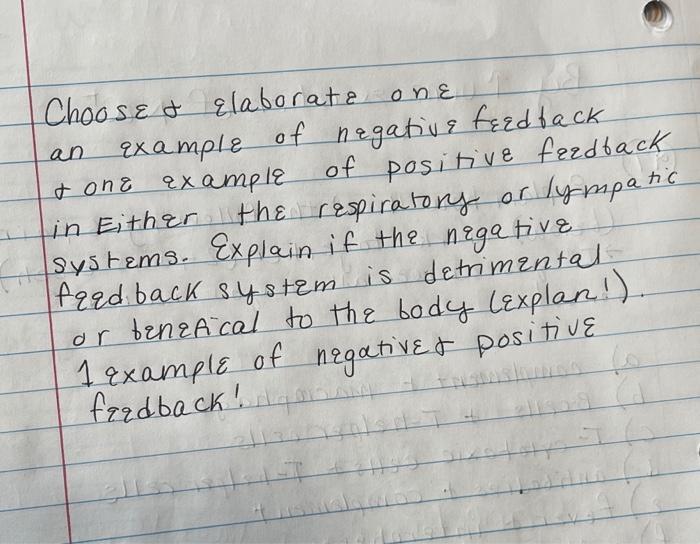 Choose & elaborate one
an example of negative feedback
& one example of positive feedback
in Either the respiratory or lympatic
systems. Explain if the negative
feedback system is detrimental
or benefical to the body (explan!).
1 example of negative & positive
feedback!